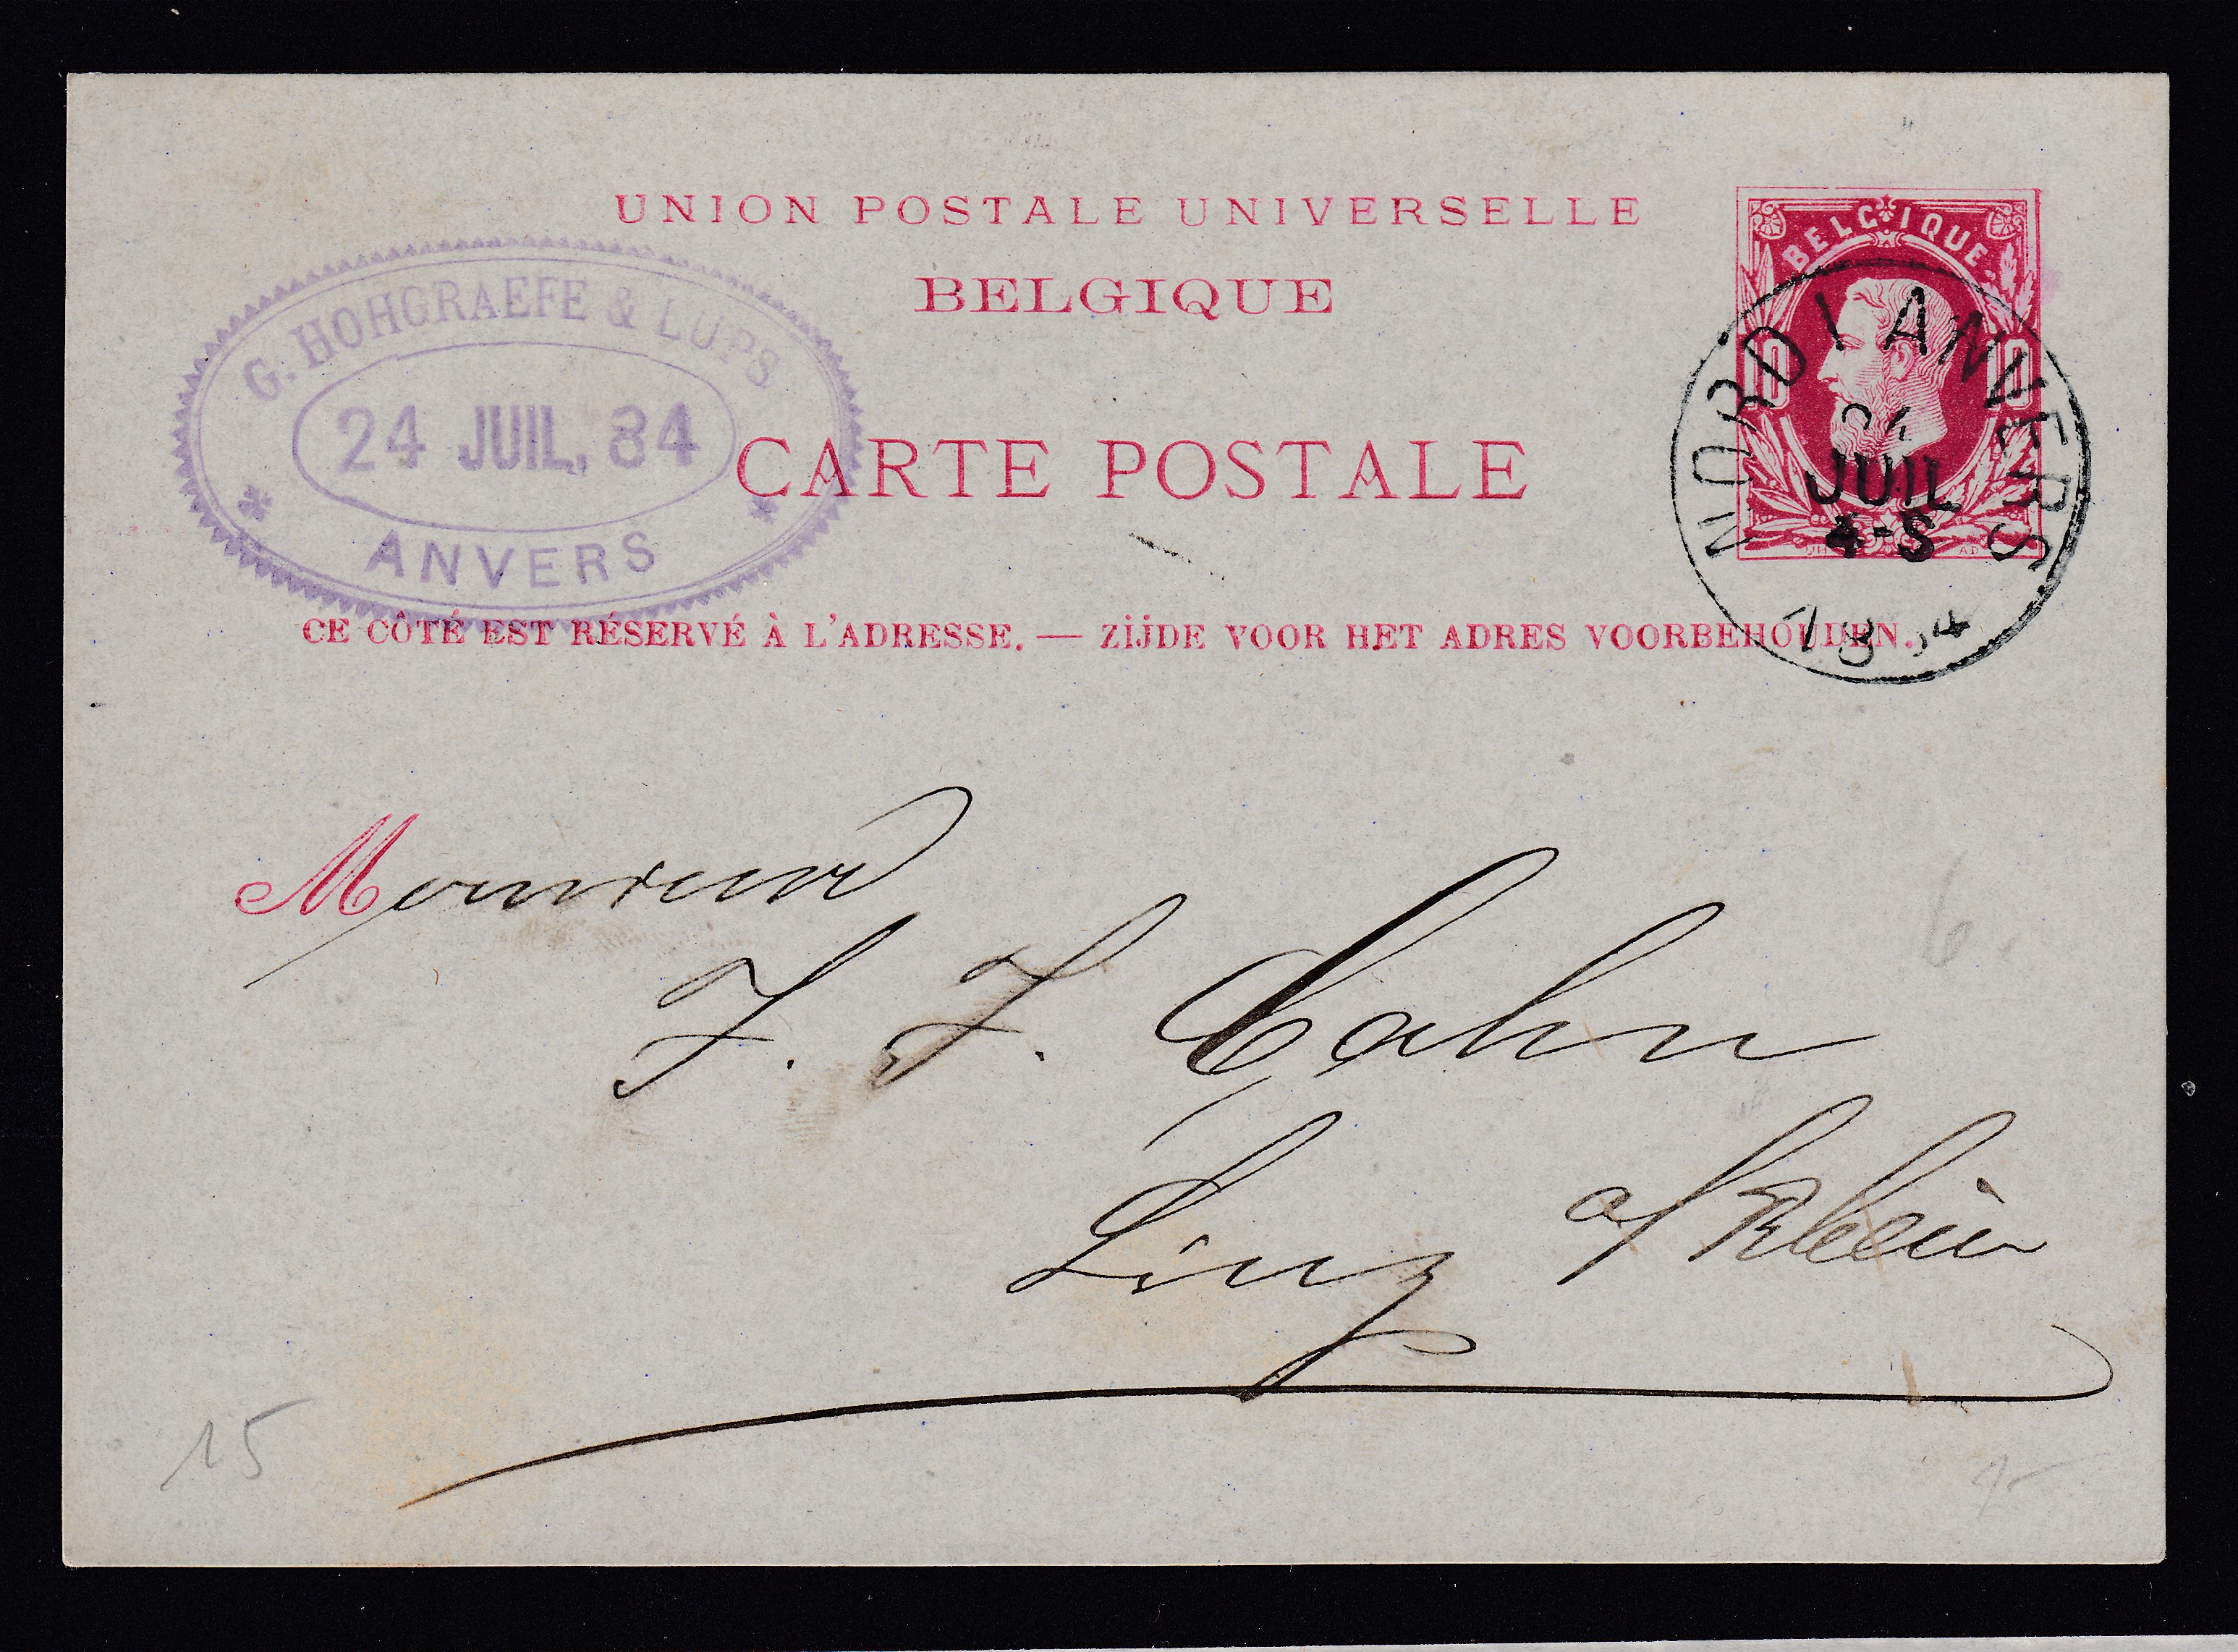 UNION POSTALE UNIVERSELLE
BELGIQUE
CARTE POSTALE
CE CÔTÉ EST RÉSERVÉ À L'ADRESSE. — ZIJDE VOOR HET ADRES VOORBEHOUDEN.
G. HOHGRAEFE & LUPS
24 JUIL. 84
ANVERS
BELGIQUE
10 10
NORD 1 ANVERS
JUIL
4-S
Monsieur
J. J. Cahn
Linz a/Rhein
15
6.